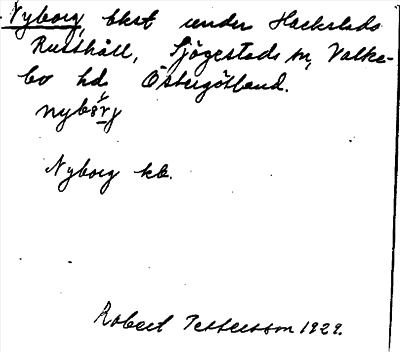 Nyborg, bkst under Hackstads
Rusthåll, Sjögestads sn, Valke-
bo hd. Östergötland.
Nyborg kb.
Robert Pettersson 1929.